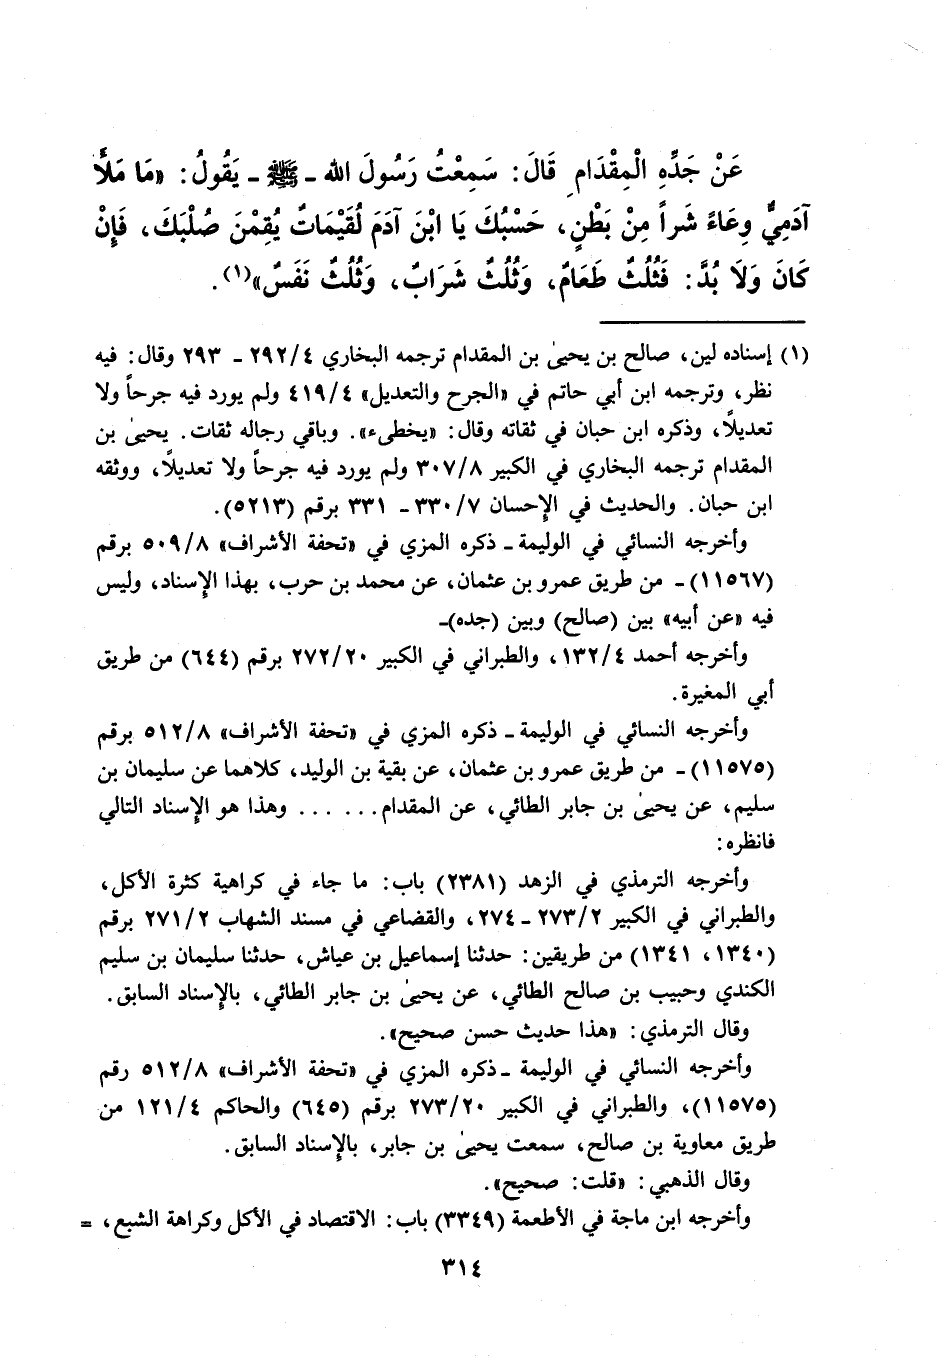 عَنْ جَدِّهِ الْمِقْدَامِ قَالَ: سَمِعْتُ رَسُولَ الله ـ ﷺ ـ يَقُولُ: «مَا مَلأَ
آدَمِيٌّ وِعَاءً شَراً مِنْ بَطْنٍ، حَسْبُكَ يَا ابْنَ آدَمَ لُقَيْمَاتٌ يُقِمْنَ صُلْبَكَ، فَإِنْ
كَانَ وَلَا بُدَّ: فَثُلُثٌ طَعَامٌ، وَثُلُثٌ شَرَابٌ، وَثُلُثٌ نَفَسٌ»(١).
(١) إسناده لين، صالح بن يحيىٰ بن المقدام ترجمه البخاري ٤/ ٢٩٢ ـ ٢٩٣ وقال: فيه
نظر، وترجمه ابن أبي حاتم في «الجرح والتعديل» ٤١٩/٤ ولم يورد فيه جرحاً ولا
تعديلًا، وذكره ابن حبان في ثقاته وقال: «يخطىء». وباقي رجاله ثقات. يحيىٰ بن
المقدام ترجمه البخاري في الكبير ٣٠٧/٨ ولم يورد فيه جرحاً ولا تعديلًا، ووثقه
ابن حبان. والحديث في الإحسان ٣٣٠/٧ ـ ٣٣١ برقم (٥٢١٣).
وأخرجه النسائي في الوليمة ـ ذكره المزي في «تحفة الأشراف» ٥٠٩/٨ برقم
(١١٥٦٧) ـ من طريق عمرو بن عثمان، عن محمد بن حرب، بهذا الإسناد، وليس
فيه «عن أبيه» بين (صالح) وبين (جده) ـ
وأخرجه أحمد ١٣٢/٤، والطبراني في الكبير ٢٧٢/٢٠ برقم (٦٤٤) من طريق
أبي المغيرة.
وأخرجه النسائي في الوليمة ـ ذكره المزي في «تحفة الأشراف» ٥١٢/٨ برقم
(١١٥٧٥) ـ من طريق عمرو بن عثمان، عن بقية بن الوليد، كلاهما عن سليمان بن
سليم، عن يحيىٰ بن جابر الطائي، عن المقدام... ... وهذا هو الإسناد التالي
فانظره:
وأخرجه الترمذي في الزهد (٢٣٨١) باب: ما جاء في كراهية كثرة الأكل،
والطبراني في الكبير ٢٧٣/٢ ـ ٢٧٤، والقضاعي في مسند الشهاب ٢٧١/٢ برقم
(١٣٤٠، ١٣٤١) من طريقين: حدثنا إسماعيل بن عياش، حدثنا سليمان بن سليم
الكندي وحبيب بن صالح الطائي، عن يحيىٰ بن جابر الطائي، بالإسناد السابق.
وقال الترمذي: «هذا حديث حسن صحيح».
وأخرجه النسائي في الوليمة ـ ذكره المزي في «تحفة الأشراف» ٥١٢/٨ رقم
(١١٥٧٥)، والطبراني في الكبير ٢٧٣/٢٠ برقم (٦٤٥) والحاكم ١٢١/٤ من
طريق معاوية بن صالح، سمعت يحيىٰ بن جابر، بالإسناد السابق.
وقال الذهبي: «قلت: صحيح».
وأخرجه ابن ماجة في الأطعمة (٣٣٤٩) باب: الاقتصاد في الأكل وكراهة الشبع، =
٣١٤